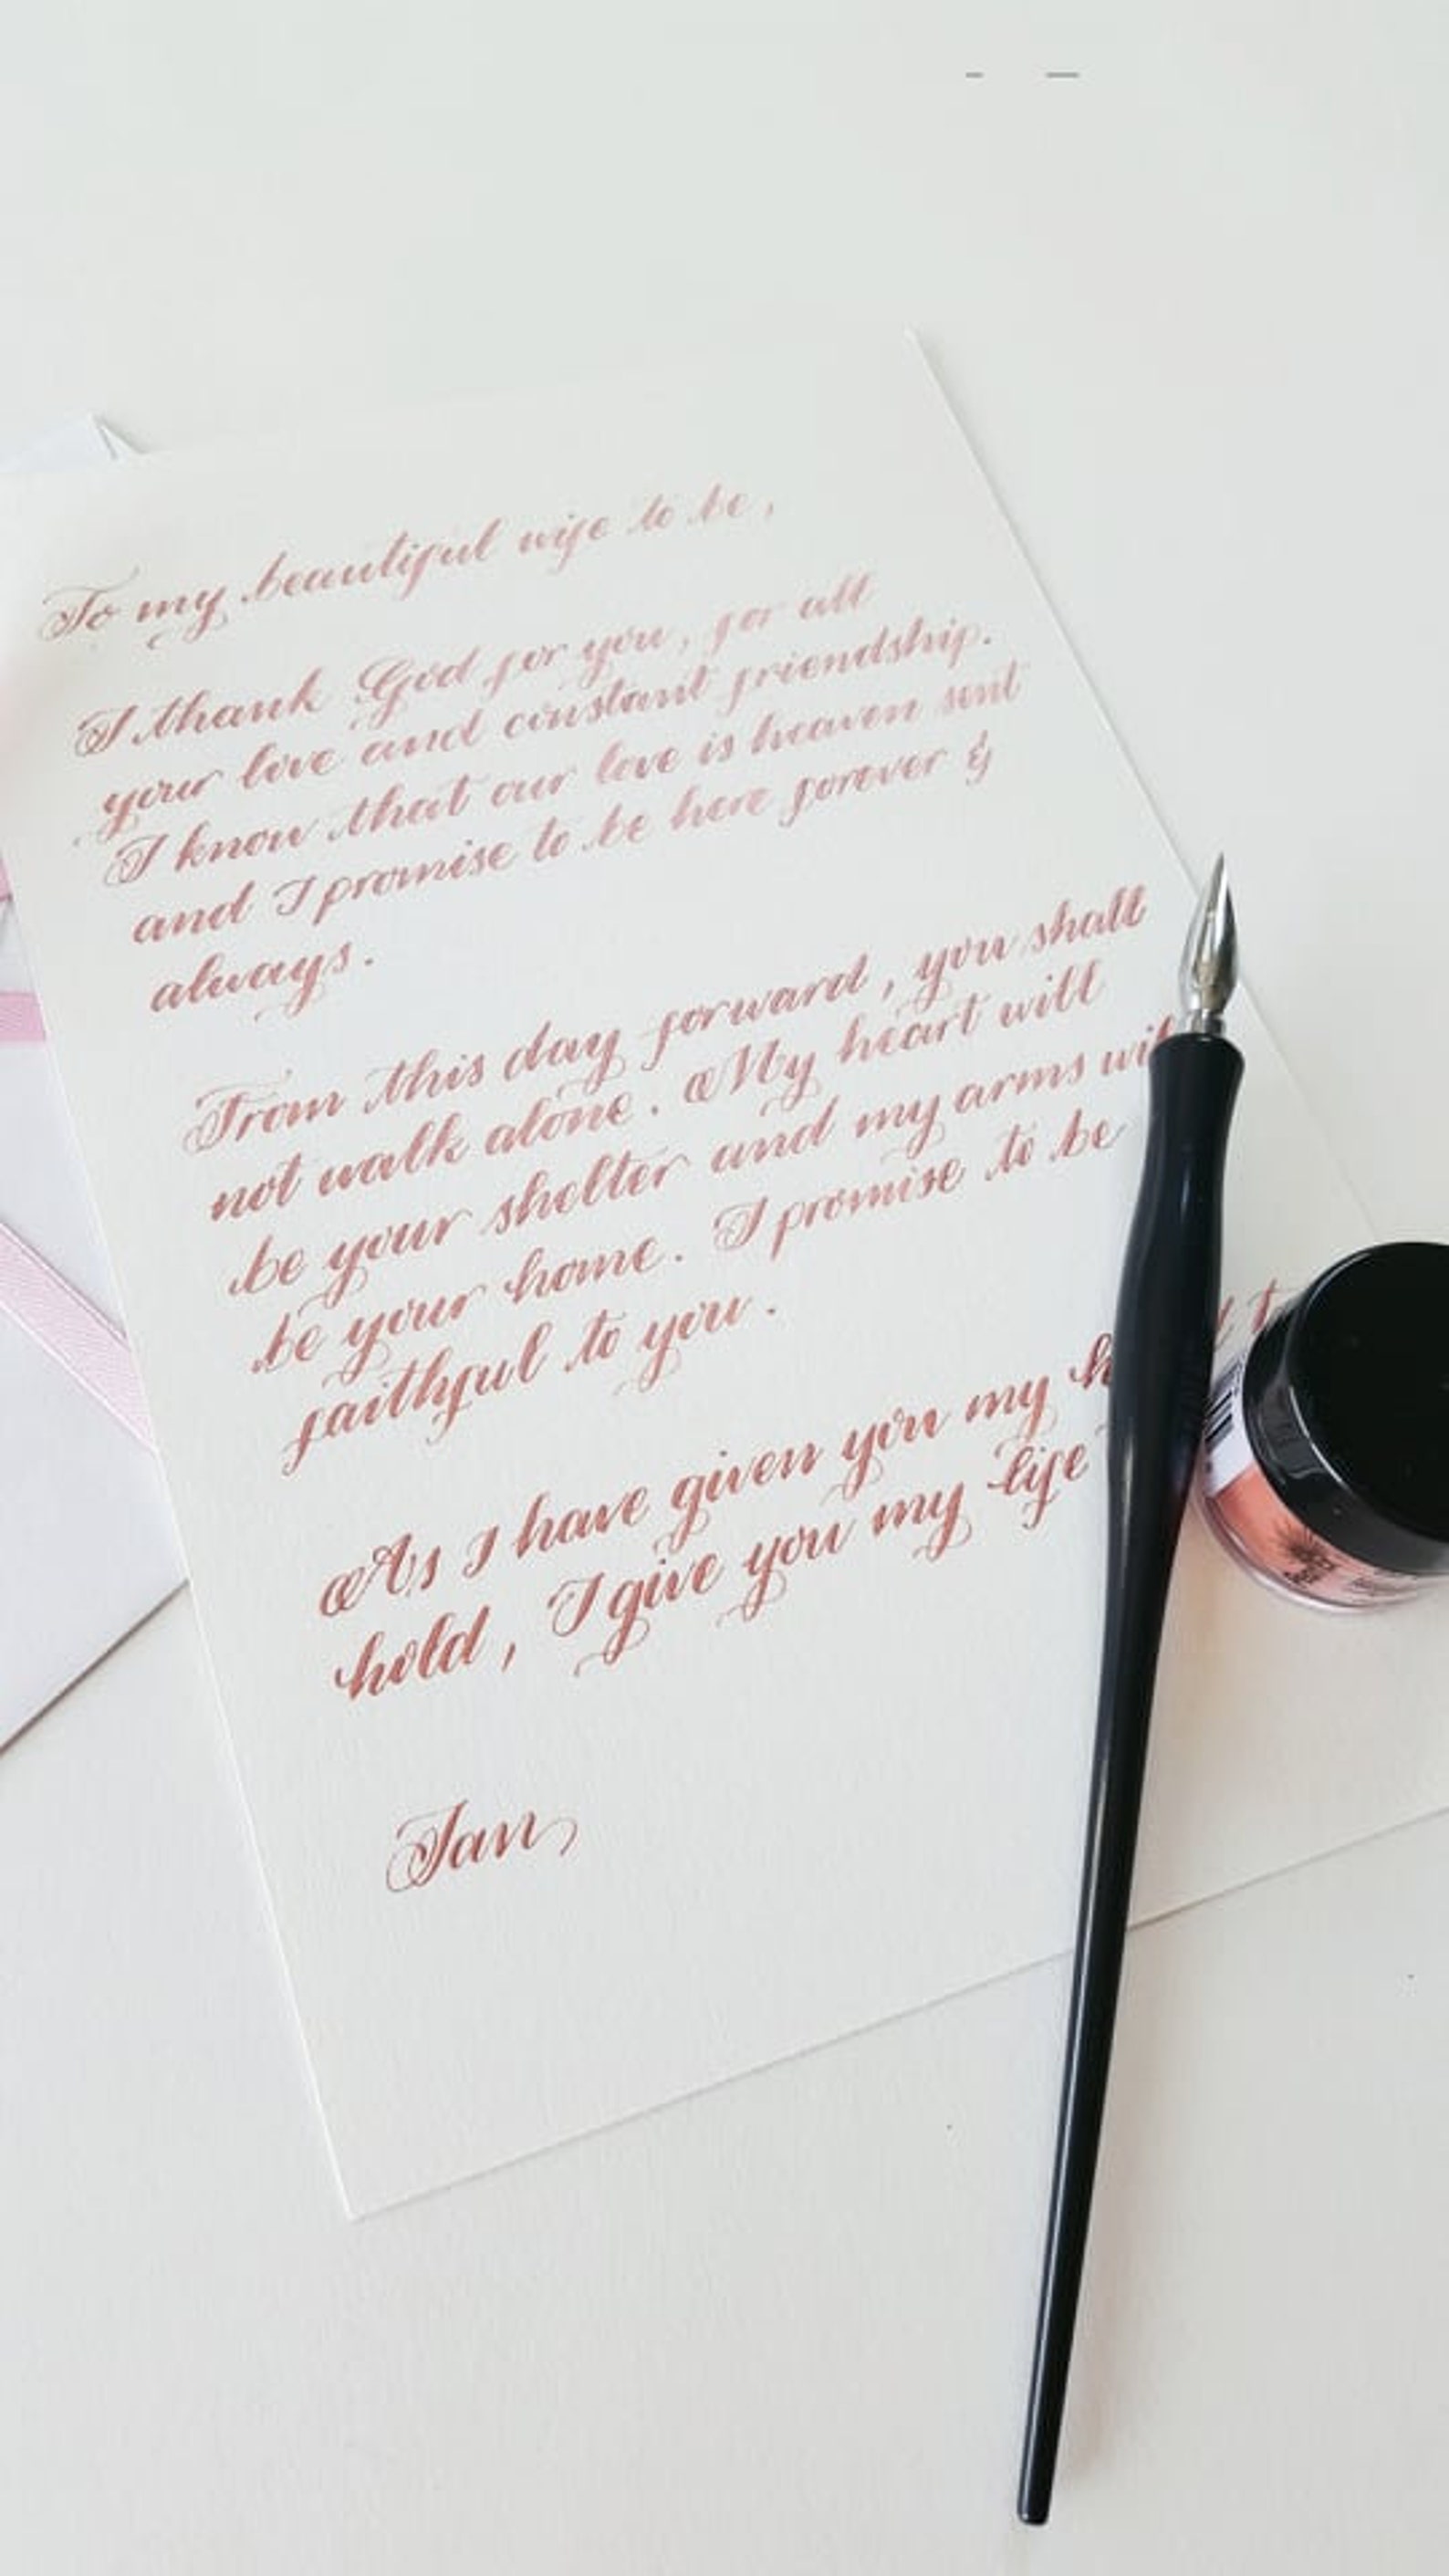 To my beautiful wife to be,
I thank God for you, for all
your love and constant friendship.
I know that our love is heaven sent
and I promise to be here forever &
always.
From this day forward, you shall
not walk alone. My heart will
be your shelter and my arms
be your home. I promise to be
faithful to you.
As I have given you my
hold, I give you my life
Ian